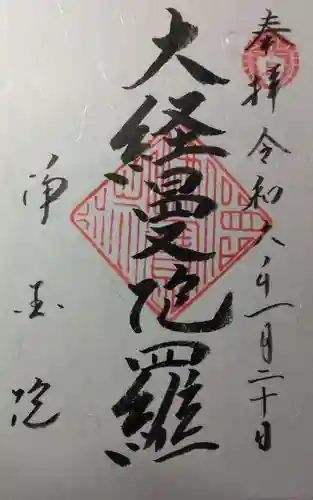 奉拝 令和八年一月二十日
大経曼陀羅
浄土院